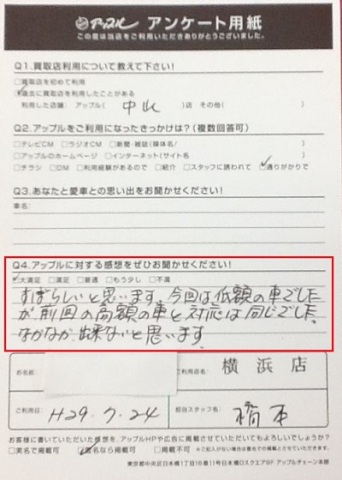 アップル アンケート用紙
この度は当店をご利用いただきありがとうございました。
Q1.買取店利用について教えて下さい!
□買取店を初めて利用
過去に買取店を利用したことがある
利用した店舗:アップル( 中山 )店 その他( )
Q2.アップルをご利用になったきっかけは?(複数回答可)
□テレビCM □ラジオCM □新聞・雑誌(媒体名/ )
□アップルのホームページ □インターネット(サイト名 )
□チラシ □DM □利用経験があるので □紹介 □スタッフに誘われて ☑通りがかりで
Q3.あなたと愛車との思い出をお聞かせください!
車名:
Q4.アップルに対する感想をぜひお聞かせください!
☑大満足 □満足 □普通 □もう少し □不満
すばらしいと思います。今回は低額の車でした
が前回の高額の車と対応は同じでした。
なかなか出来ないと思います
お名前: ご利用店名: 横浜店
ご利用日: H29.7.24 担当スタッフ名: 橋本
お客様に書いていただいた感想を、アップルHPや広告に掲載させていただいてもよろしいでしょうか?
□実名で掲載可 ☑匿名なら掲載可 □掲載不可
東京都中央区日本橋1丁目16番11号日本橋Dスクエア9F アップルチェーン本部